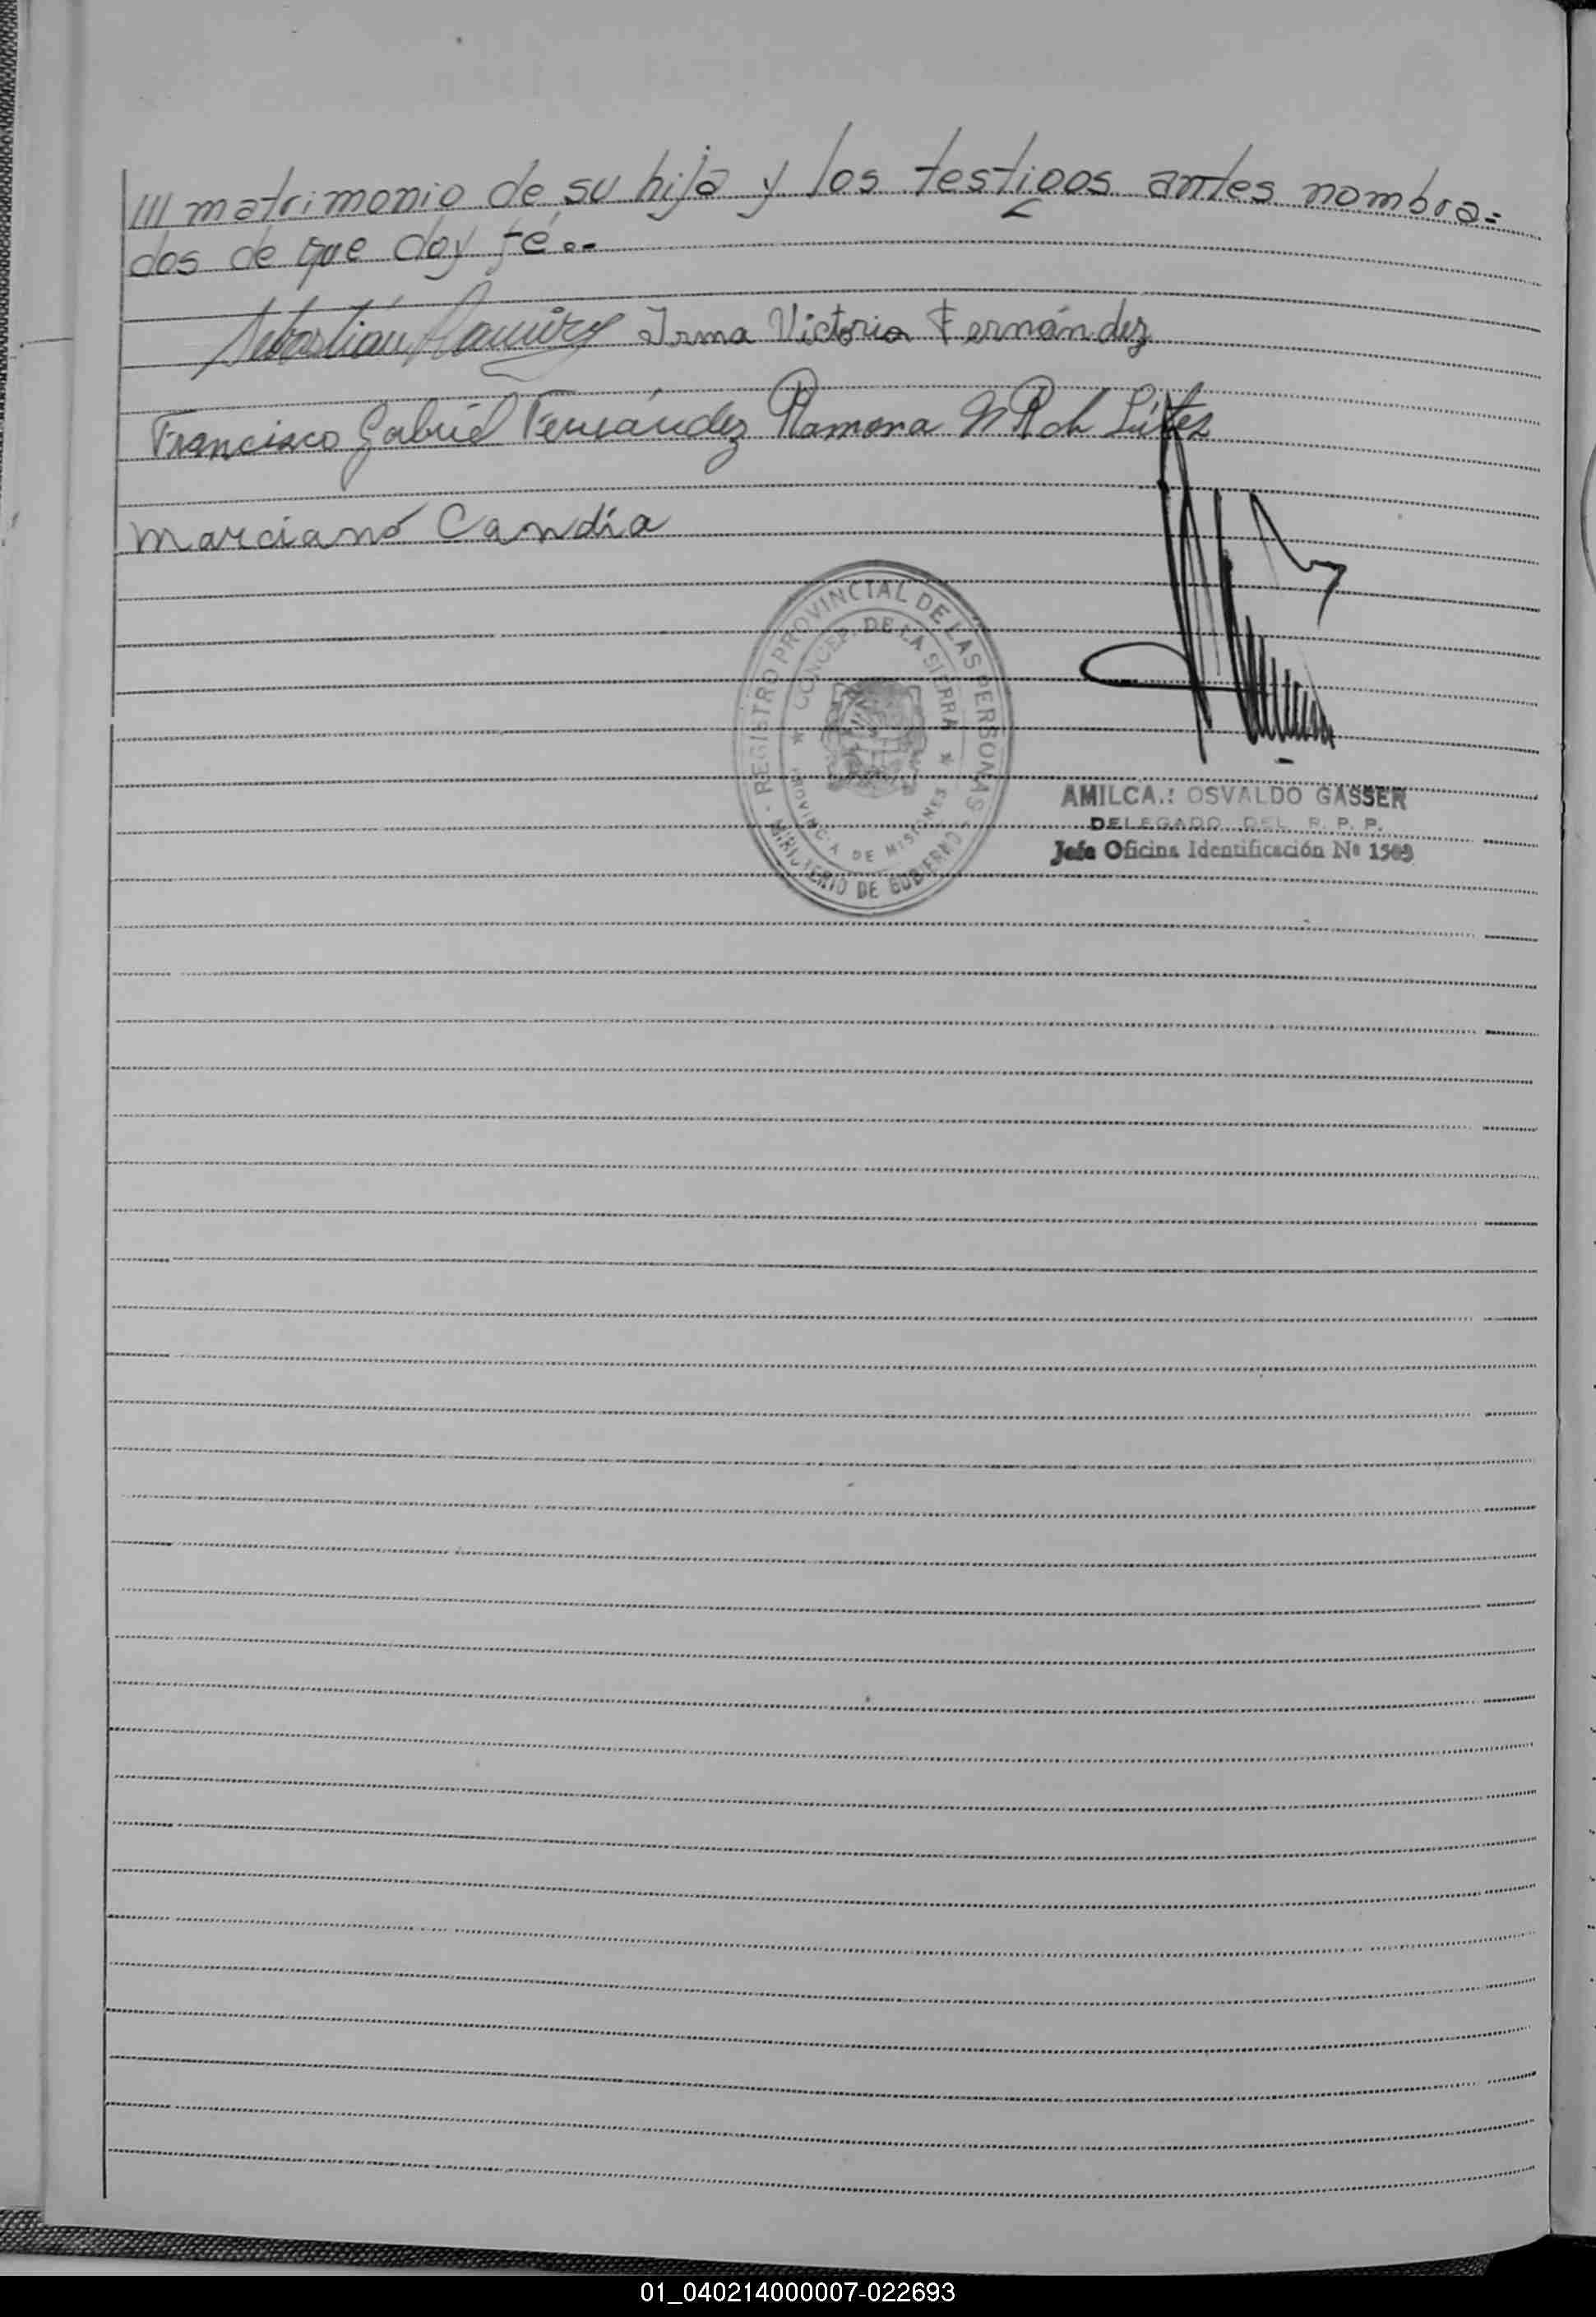 /// matrimonio de su hija y los testigos antes nombra=
dos de que doy fé.-
Sebastián Ramirez Irma Victoria Fernández
Francisco Gabriel Fernández Ramona
Marciano Candia
- REGISTRO PROVINCIAL DE LAS PERSONAS -
MINISTERIO DE GOBIERNO
CONCEP. DE LA SIERRA
PROVINCIA DE MISIONES
OSVALDO GASSER
DELEGADO DEL R. P. P.
Jefe Oficina Identificación Nº
01_040214000007-022693